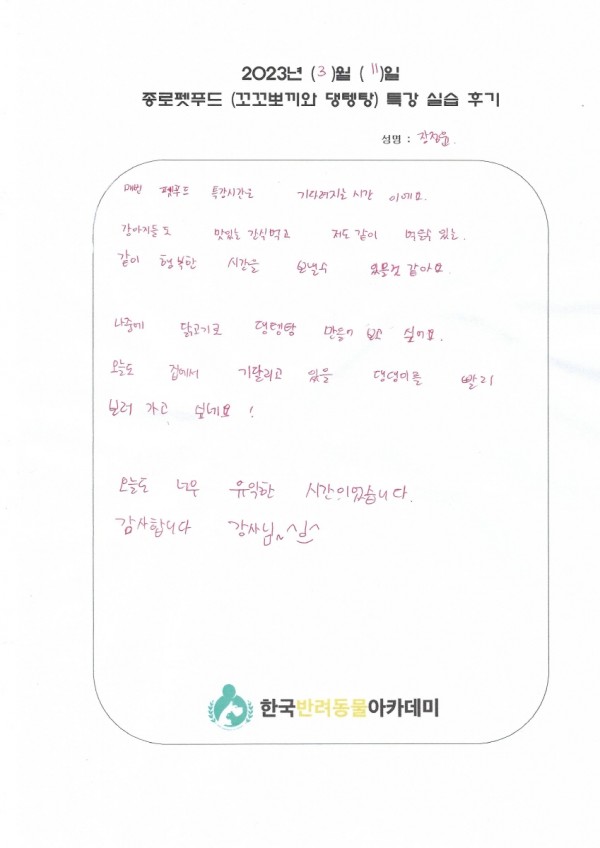 2023년 (3)월 (11)일
종로펫푸드 (꼬꼬뽀끼와 댕텡탕) 특강 실습 후기
성명 : 장정윤
매번 펫푸드 특강시간은 기다려지는 시간 이에요.
강아지들도 맛있는 간식먹고 저도 같이 먹을수 있는.
같이 행복한 시간을 보낼수 있을것 같아요.
나중에 닭고기로 댕텡탕 만들어 보고 싶어요.
오늘도 집에서 기달리고 있을 댕댕이를 빨리
보러 가고 싶네요!
오늘도 너무 유익한 시간이었습니다.
감사합니다 강사님~^^
한국반려동물아카데미